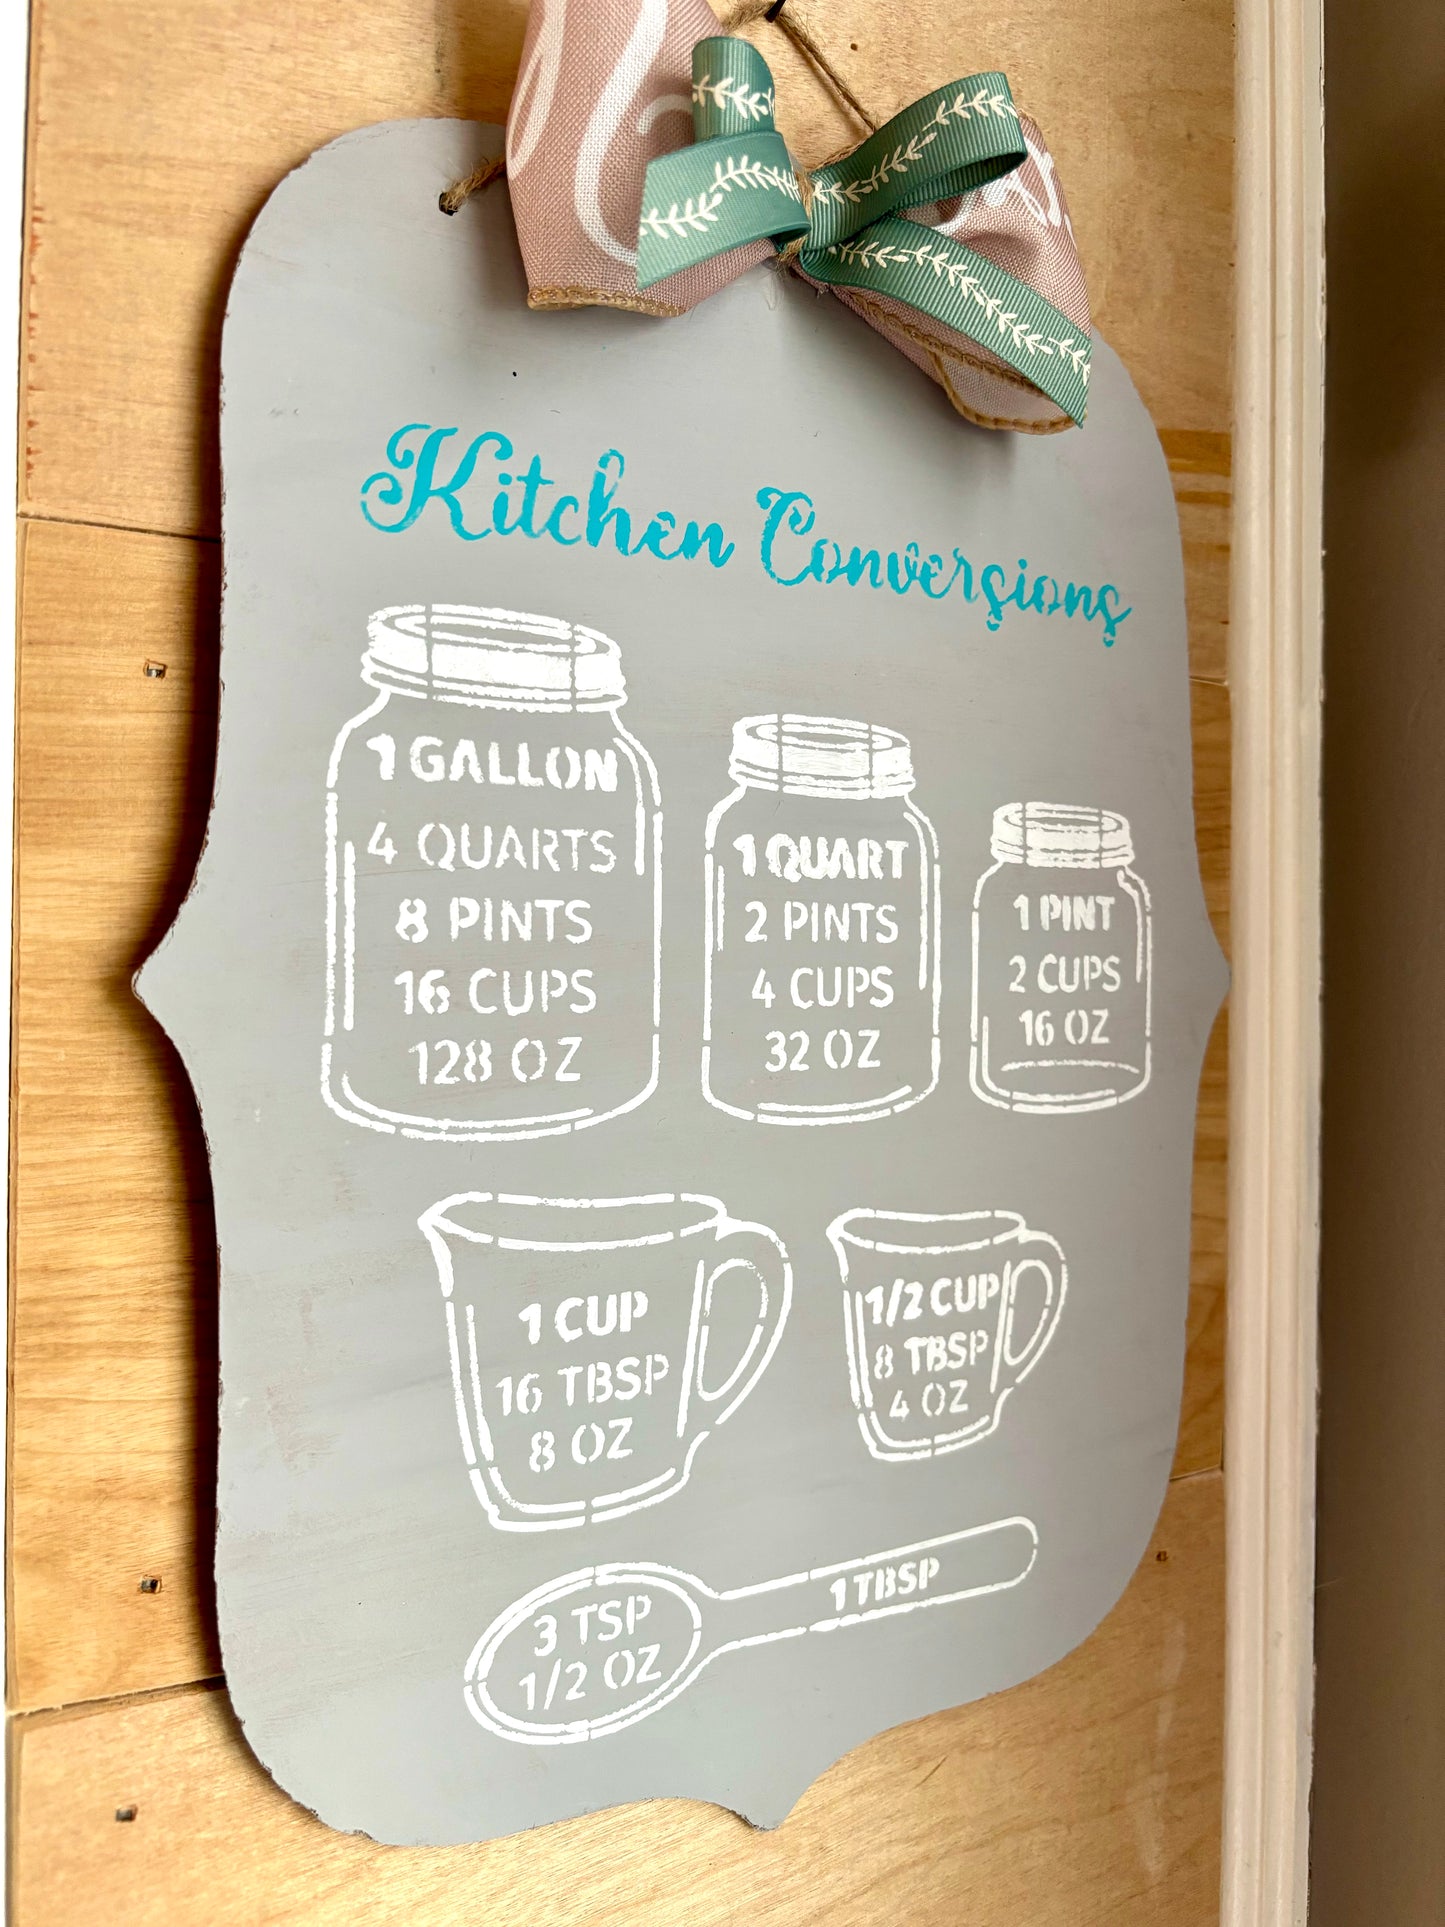 Kitchen Conversions
1 GALLON
4 QUARTS
8 PINTS
16 CUPS
128 OZ
1 QUART
2 PINTS
4 CUPS
32 OZ
1 PINT
2 CUPS
16 OZ
1 CUP
16 TBSP
8 OZ
1/2 CUP
8 TBSP
4 OZ
1 TBSP
3 TSP
1/2 OZ